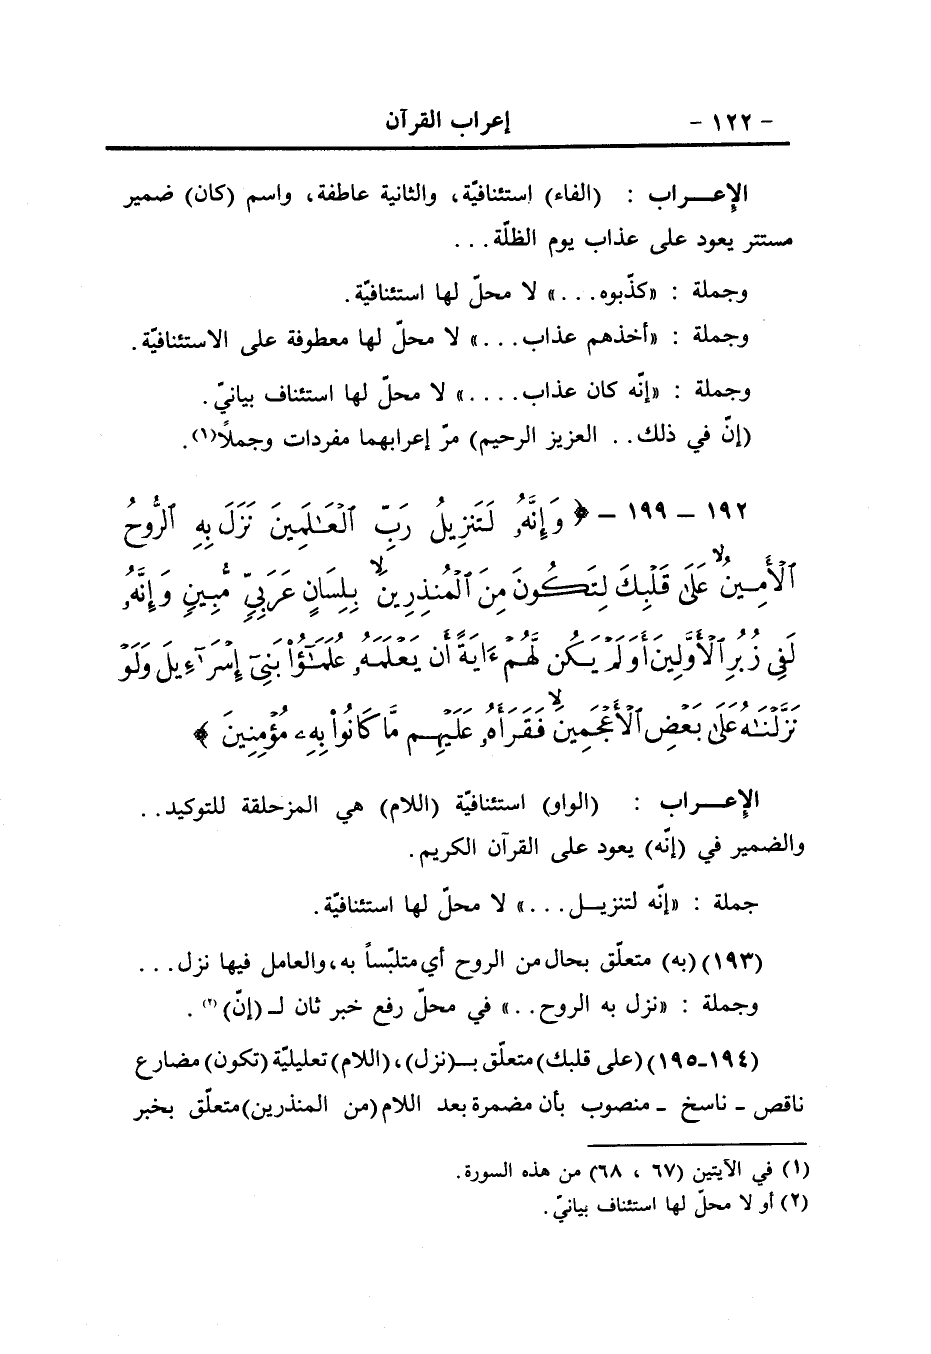 - ١٢٢ - إعراب القرآن
الإعـــراب : (الفاء) استئنافيّة، والثانية عاطفة، واسم (كان) ضمير
مستتر يعود على عذاب يوم الظلّة...
وجملة : «كذّبوه...» لا محلّ لها استئنافيّة.
وجملة : «أخذهم عذاب...» لا محلّ لها معطوفة على الاستئنافيّة.
وجملة : «إنّه كان عذاب....» لا محلّ لها استئناف بيانيّ.
(إنّ في ذلك.. العزيز الرحيم) مرّ إعرابهما مفردات وجملاً(١).
١٩٢ - ١٩٩ - ﴿ وَإِنَّهُۥ لَتَنزِيلُ رَبِّ ٱلْعَـٰلَمِينَ نَزَلَ بِهِ ٱلرُّوحُ
ٱلْأَمِينُ ۙ عَلَىٰ قَلْبِكَ لِتَكُونَ مِنَ ٱلْمُنذِرِينَ ۙ بِلِسَانٍ عَرَبِيٍّ مُّبِينٍ وَإِنَّهُۥ
لَفِى زُبُرِ ٱلْأَوَّلِينَ أَوَلَمْ يَكُن لَّهُمْ ءَايَةً أَن يَعْلَمَهُۥ عُلَمَـٰٓؤُا۟ بَنِىٓ إِسْرَٰٓءِيلَ وَلَوْ
نَزَّلْنَـٰهُ عَلَىٰ بَعْضِ ٱلْأَعْجَمِينَ ۙ فَقَرَأَهُۥ عَلَيْهِم مَّا كَانُوا۟ بِهِۦ مُؤْمِنِينَ ﴾
الإعـــراب : (الواو) استئنافيّة (اللام) هي المزحلقة للتوكيد..
والضمير في (إنّه) يعود على القرآن الكريم.
جملة : «إنّه لتنزيـل...» لا محلّ لها استئنافيّة.
(١٩٣) (به) متعلّق بحال من الروح أي متلبّساً به، والعامل فيها نزل...
وجملة : «نزل به الروح..» في محلّ رفع خبر ثان لـ (إنّ)(٢).
(١٩٤-١٩٥) (على قلبك) متعلّق بـ(نزل)، (اللام) تعليليّة (تكون) مضارع
ناقص - ناسخ - منصوب بأن مضمرة بعد اللام (من المنذرين) متعلّق بخبر
(١) في الآيتين (٦٧ ، ٦٨) من هذه السورة.
(٢) أو لا محلّ لها استئناف بيانيّ.